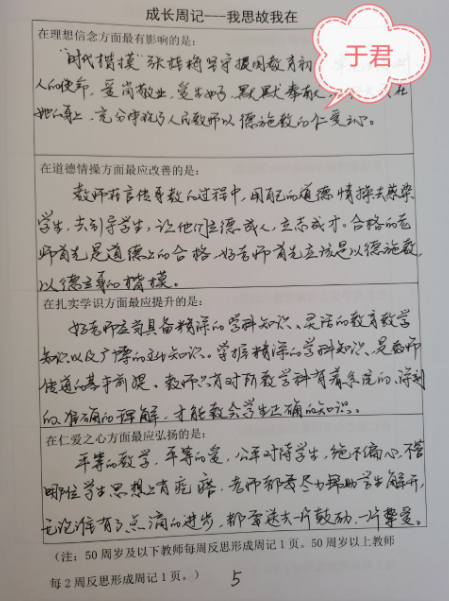 成长周记---我思故我在
于君
在理想信念方面最有影响的是:
"时代楷模"张桂梅坚守援困教育初
人的使命,爱岗敬业,爱生如子,默默奉献 在
她的身上,充分体现了人民教师以德施教的仁爱之心。
在道德情操方面最应改善的是:
教师在言传身教的过程中,用自己的道德情操去感染
学生,去引导学生,让他们立德成人,立志成才。合格的老
师首先是道德上的合格,好老师首先应该是以德施教,
以德立身的楷模。
在扎实学识方面最应提升的是:
好老师应当具备精深的学科知识、灵活的教育教学
知识以及广博的 知识。掌握精深的学科知识、是教师
传道的基于前提。教师只有对所教学科有着系统的、深刻
的、准确的理解,才能教会学生正确的知识。
在仁爱之心方面最应弘扬的是:
平等的教学,平等的爱,公平对待学生,绝不偏心,不管
哪位学生思想上有疙瘩,老师都要尽力帮助学生解开,
无论谁有了点滴的进步,都要送去一片鼓励,一片挚爱。
(注:50周岁及以下教师每周反思形成周记1页。50周岁以上教师
每2周反思形成周记1页。)
5